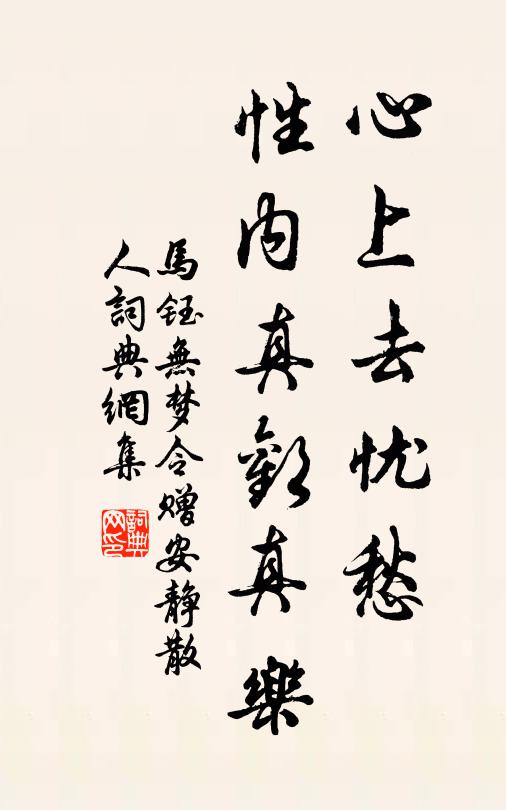 心上去忧愁
性内真歡真樂
馬鈺無梦令赠安静散
人詞典網集
詞典
网印